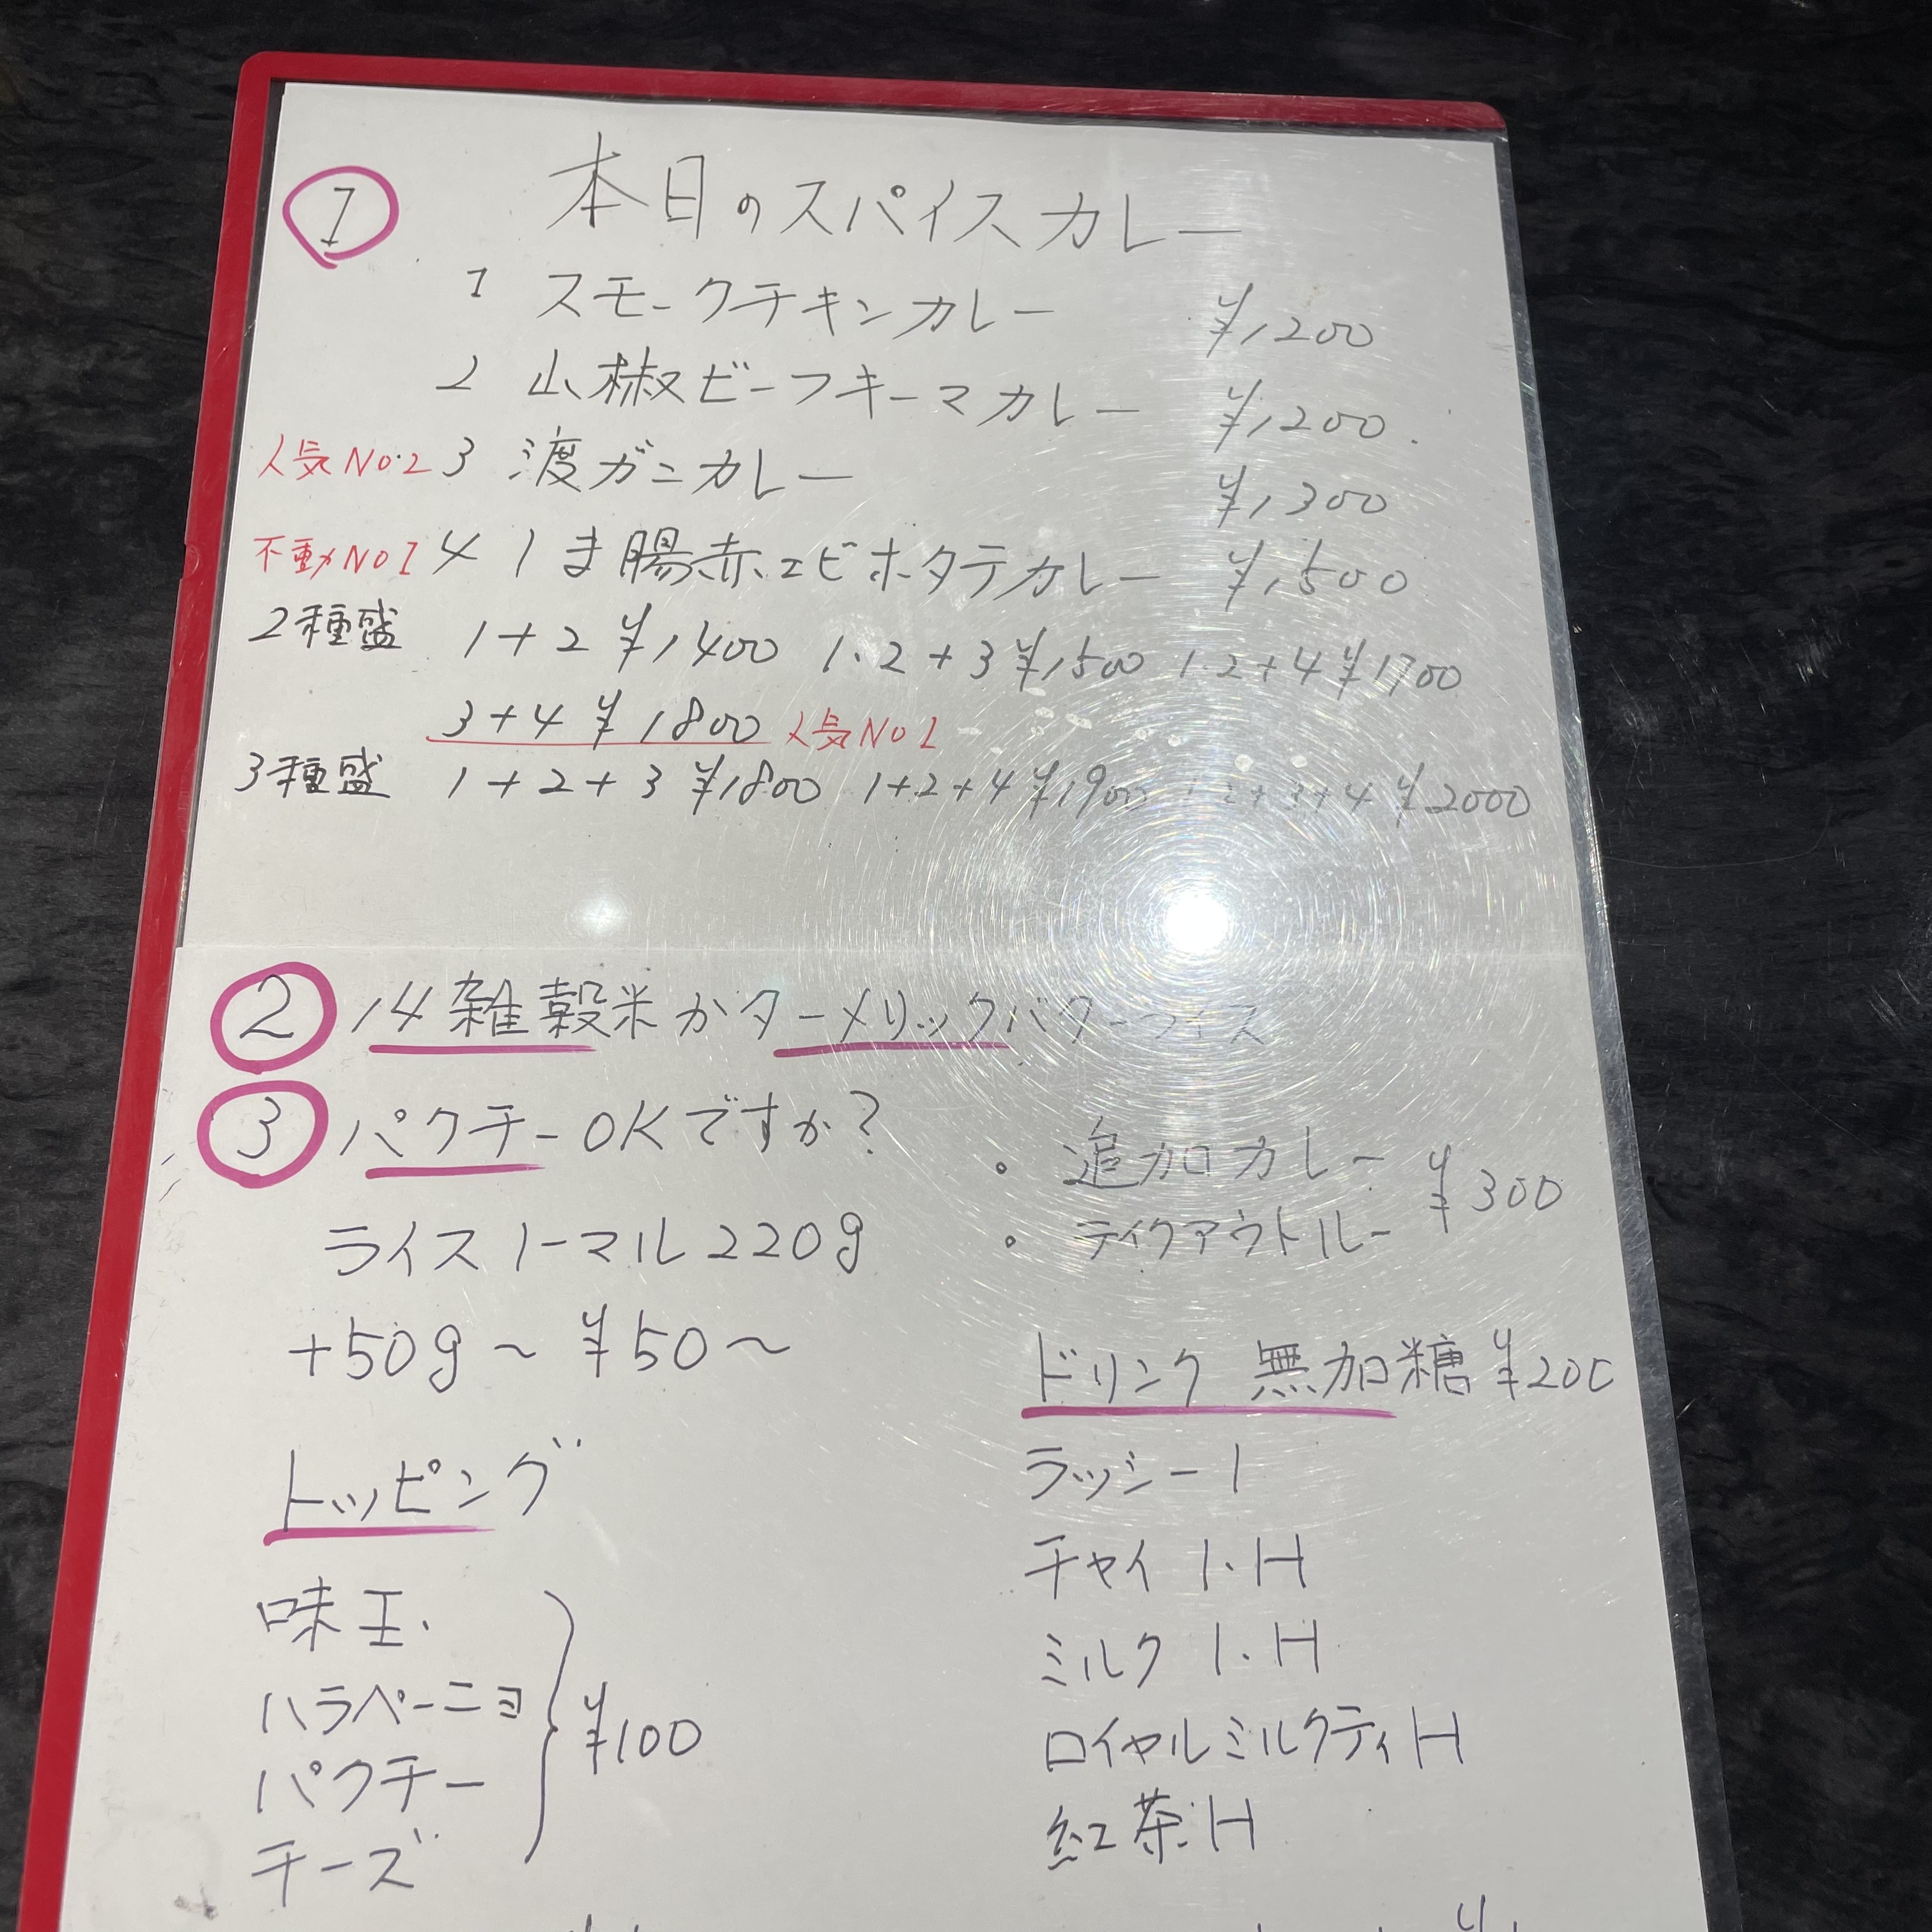 ① 本日のスパイスカレー
1 スモークチキンカレー ¥1,200
2 山椒ビーフキーマカレー ¥1,200.
人気No.2 3 渡ガニカレー ¥1,300
不動No1 4 しま腸赤エビホタテカレー ¥1,500
2種盛 1+2 ¥1,400 1.2+3 ¥1,500 1.2+4 ¥1700
3+4 ¥1800 人気No1
3種盛 1+2+3 ¥1800 1+2+4 ¥1900 1.2+3+4 ¥2000
② 14雑穀米かターメリックバターライス
③ パクチーOKですか?
・追加カレー ¥300
・テイクアウトルー
ライスノーマル220g
+50g〜 ¥50〜
トッピング
味玉
ハラペーニョ
パクチー
チーズ
¥100
ドリンク 無加糖 ¥200
ラッシー I
チャイ I.H
ミルク I.H
ロイヤルミルクティ H
紅茶 H